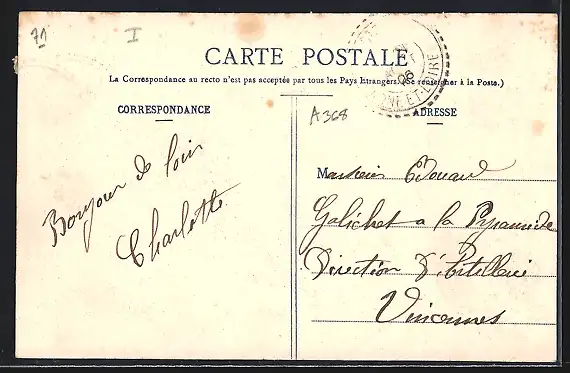 71
I
CARTE POSTALE
La Correspondance au recto n'est pas acceptée par tous les Pays Etrangers. (Se renseigner à la Poste.)
06
ET-LOIRE
A368
CORRESPONDANCE
ADRESSE
Bonjour de loin
Charlotte
Monsieur Edouard
Galichet a la Pyramide
Direction d'Artillerie
Vincennes